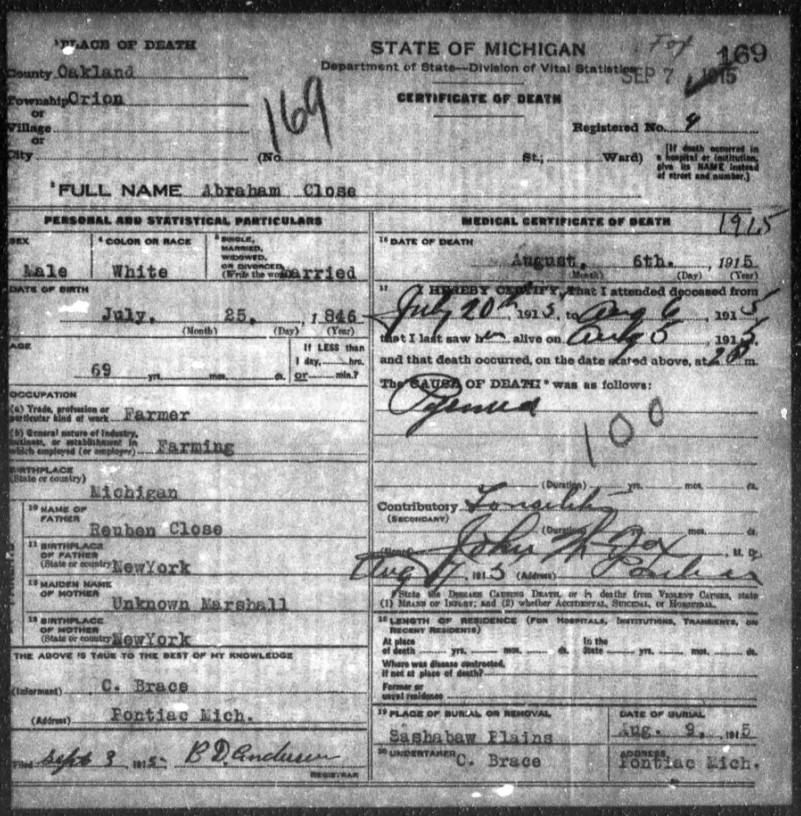 ¹PLACE OF DEATH
County Oakland
Township Orion
or
Village
or
City
STATE OF MICHIGAN
Department of State—Division of Vital Statistics
SEP 7 1915
169
CERTIFICATE OF DEATH
169
Registered No. 9
(No. St.; Ward)
[If death occurred in
a hospital or institution,
give its NAME instead
of street and number.]
²FULL NAME Abraham Close
PERSONAL AND STATISTICAL PARTICULARS
SEX
Male
⁴ COLOR OR RACE
White
⁵ SINGLE,
MARRIED,
WIDOWED,
OR DIVORCED
(Write the word) Married
DATE OF BIRTH
July, 25, 1846
(Month) (Day) (Year)
AGE
69 yrs. mos. ds.
If LESS than
1 day, hrs.
or min.?
OCCUPATION
(a) Trade, profession or
particular kind of work Farmer
(b) General nature of industry,
business, or establishment in
which employed (or employer) Farming
BIRTHPLACE
(State or country)
Michigan
¹⁰ NAME OF
FATHER
Reuben Close
¹¹ BIRTHPLACE
OF FATHER
(State or country) NewYork
¹² MAIDEN NAME
OF MOTHER
Unknown Marshall
¹³ BIRTHPLACE
OF MOTHER
(State or country) NewYork
THE ABOVE IS TRUE TO THE BEST OF MY KNOWLEDGE
(Informant) C. Brace
(Address) Pontiac Mich.
Filed Sept 3 1915 B.D. Anderson
REGISTRAR
MEDICAL CERTIFICATE OF DEATH
1915
¹⁶ DATE OF DEATH
August, 6th. , 1915
(Month) (Day) (Year)
¹⁷ I HEREBY CERTIFY, That I attended deceased from
July 20th, 1915, to Aug 6, 1915
that I last saw alive on Aug 5, 1915,
and that death occurred, on the date stated above, at m.
The CAUSE OF DEATH* was as follows:
Pyemia
100
(Duration) yrs. mos. ds.
Contributory Tonsilitis
(SECONDARY)
(Duration) mos. ds.
(Signed) John M. Fox, M. D.
Aug 7, 1915 (Address) Pontiac
*State the DISEASE CAUSING DEATH, or, in deaths from VIOLENT CAUSES, state
(1) MEANS OF INJURY; and (2) whether ACCIDENTAL, SUICIDAL, or HOMICIDAL.
¹⁸ LENGTH OF RESIDENCE (FOR HOSPITALS, INSTITUTIONS, TRANSIENTS, OR
RECENT RESIDENTS)
At place
of death yrs. mos. ds.
In the
State yrs. mos. ds.
Where was disease contracted,
if not at place of death?
Former or
usual residence
¹⁹ PLACE OF BURIAL OR REMOVAL
Sashabaw Plains
DATE OF BURIAL
Aug. 9, , 1915
²⁰ UNDERTAKER
C. Brace
ADDRESS
Pontiac Mich.